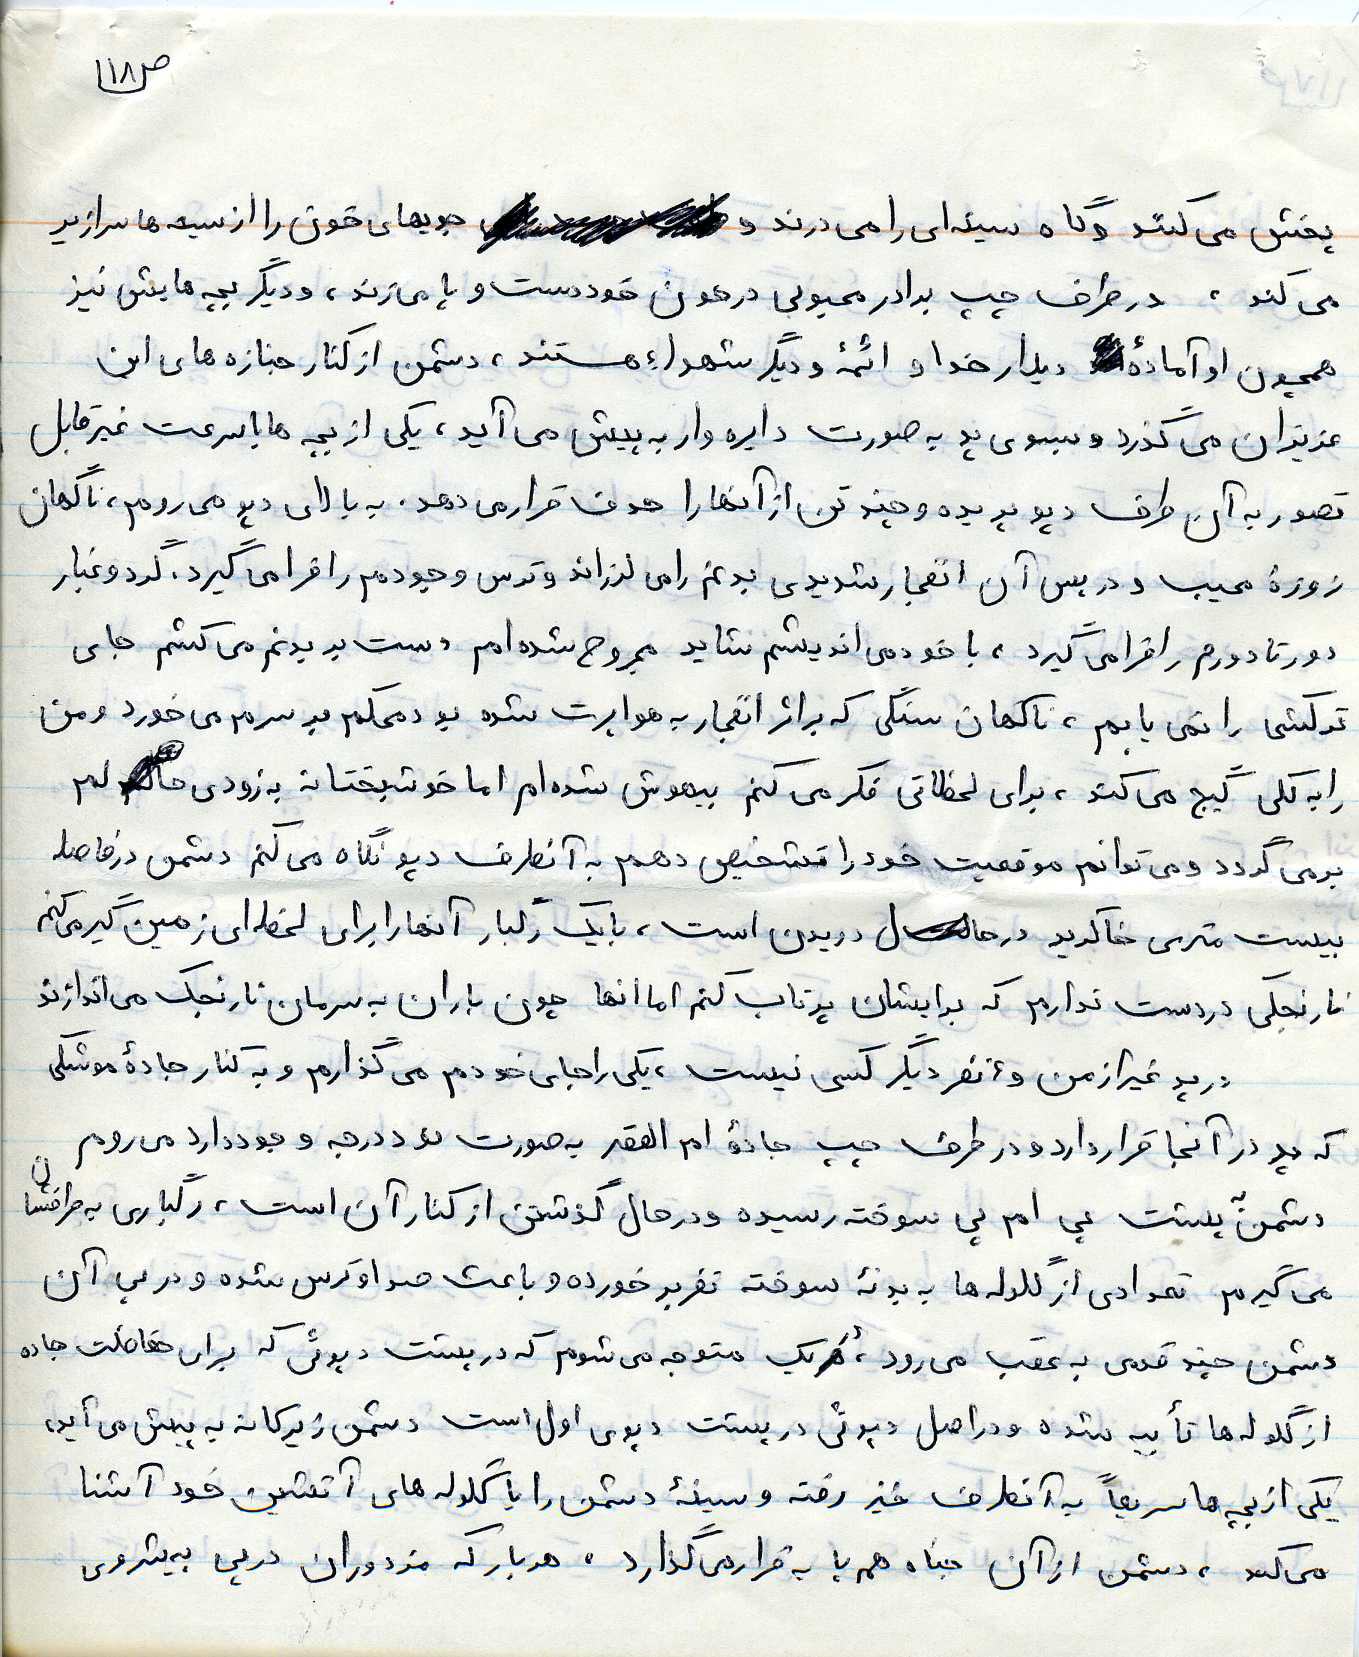 ص۱۱۸
پخش می‌کنند و گاه سینه‌ای را می‌درند و جویهای خون را از سینه‌ها سرازیر
می‌کند ، در طرف چپ برادر محبوبی در خون خود دست و پا می‌زند ، و دیگر بچه‌هایش نیز
همچون او آمادهٔ دیدار خدا و ائمهٔ و دیگر شهداء هستند ، دشمن از کنار جنازه‌های این
عزیزان می‌گذرد و بسوی پد به صورت دایره وار به پیش می‌آید ، یکی از بچه‌ها با سرعت غیرقابل
تصور به آن طرف دپو پریده و چند تن از آنها را هدف قرار می‌دهد . به بالای دپو می‌روم ، ناگهان
زوزهٔ مهیب و در پس آن انفجار شدیدی بدنم را می‌لرزاند و ترس وجودم را فرا می‌گیرد ، گرد و غبار
دور تا دورم را فرا می‌گیرد ، با خود می‌اندیشم شاید مجروح شده‌ام دست بر بدنم می‌کشم جای
ترکشی را نمی‌یابم ، ناگهان سنگی که بر اثر انفجار به هوا پرت شده بود محکم بر سرم می‌خورد و من
را به کلی گیج می‌کند ، برای لحظاتی فکر می‌کنم بیهوش شده‌ام اما خوشبختانه به زودی حالم
برمی‌گردد و می‌توانم موقعیت خود را تشخیص دهم به آنطرف دپو نگاه می‌کنم دشمن در فاصله
بیست متری خاکریز در حال دویدن است ، با یک رگبار آنها را برای لحظه‌ای زمین گیر می‌کنم
نارنجکی در دست ندارم که برایشان پرتاب کنم اما انها چون باران به سرمان نارنجک می‌اندازند
در پد غیر از من و ۲ نفر دیگر کسی نیست ، یکی را جای خودم می‌گذارم و به کنار جادهٔ موشکی
که پد در آنجا قرار دارد و در طرف چپ جادهٔ ام القصر به صورت ۹۰ درجه وجود دارد می‌روم
دشمن به پشت پی ام پی سوخته رسیده و در حال گذشتن از کنار آن است ، رگباری به طرفشان
می‌گیرم تعدادی از گلوله‌ها به بدنهٔ سوخته نفربر خورده و باعث صدا و ترس شده و در پی آن
دشمن چند قدمی به عقب می‌رود ، یک متوجه می‌شوم که در پشت دپوئی که برای حفاظت جاده
از گلوله‌ها تأبیه شده و در اصل دپوئی در پشت دپوی اول است دشمن زیرکانه به پیش می‌آید ،
یکی از بچه‌ها سریعاً به آنطرف خیز رفته و سینهٔ دشمن را با گلوله‌های آتشین خود آشنا
می‌کند ، دشمن از آن جناه هم پا به فرار می‌گذارد ، هر بار که مزدوران در پی پیشروی